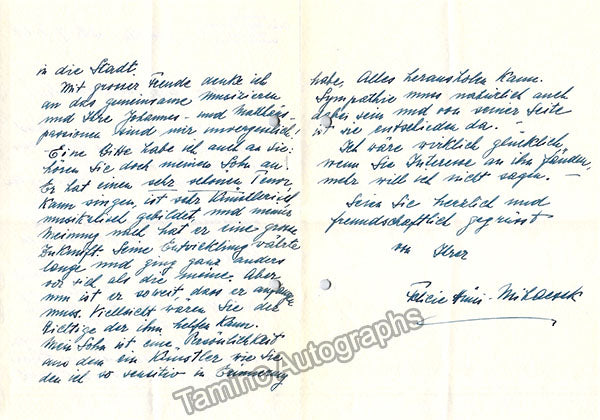 in die Stadt.
Mit grosser Freude denke ich
an das gemeinsame Musizieren
und Ihre Johannes- und Matthäus-
passionen sind mir unvergesslich!
Eine Bitte habe ich auch an Sie:
hören Sie doch meinen Sohn an.
Er hat einen sehr schönen Tenor,
kann singen, ist sehr künstlerisch
musikalisch gebildet, und meiner
Meinung nach hat er eine grosse
Zukunft. Seine Entwicklung währte
lange und ging ganz anders
vor sich als die meine. Aber
nun ist er soweit, dass er anfangen
muss. Vielleicht wären Sie der
Richtige der ihm helfen kann.
Mein Sohn ist eine Persönlichkeit
aus dem ein Künstler wie Sie,
den ich so sensitiv in Erinnerung
habe, Alles herausholen kann.
Sympathie muss natürlich auch
dabei sein und von seiner Seite
ist sie entschieden da.-
Ich wäre wirklich glücklich,
wenn Sie Interesse an ihm fänden,
mehr will ich nicht sagen.-
Seien Sie herzlich und
freundschaftlich gegrüsst
von Ihrer
Felicie Hüni-Mihacsek
Tamino Autographs